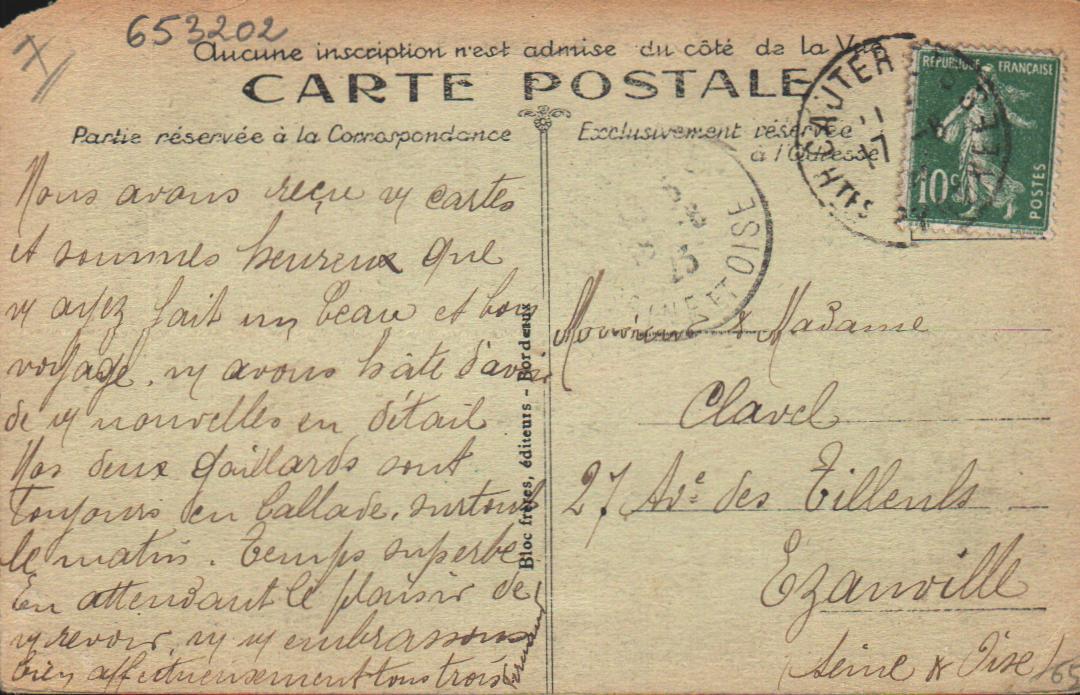 653202
7
Aucune inscription n'est admise du côté de la Vue
CARTE POSTALE
Partie réservée à la Correspondance
Exclusivement réservée
à l'Adresse
Nous avons reçu vs cartes
et sommes heureux que
vs ayez fait un beau et bon
voyage. ns avons hâte d'avoir
de vs nouvelles en détail
Nos deux gaillards sont
toujours en ballade, surtout
le matin. Temps superbe
En attendant le plaisir de
vs revoir, ns vs embrassons
bien affectueusement tous trois
Bloc frères, éditeurs - Bordeaux
REPUBLIQUE FRANÇAISE
10c POSTES
CAUTER
HTES
SEINE ET OISE
Monsieur & Madame
Clavel
27 Ave des Tilleuls
Ezanville
(Seine & Oise)
65